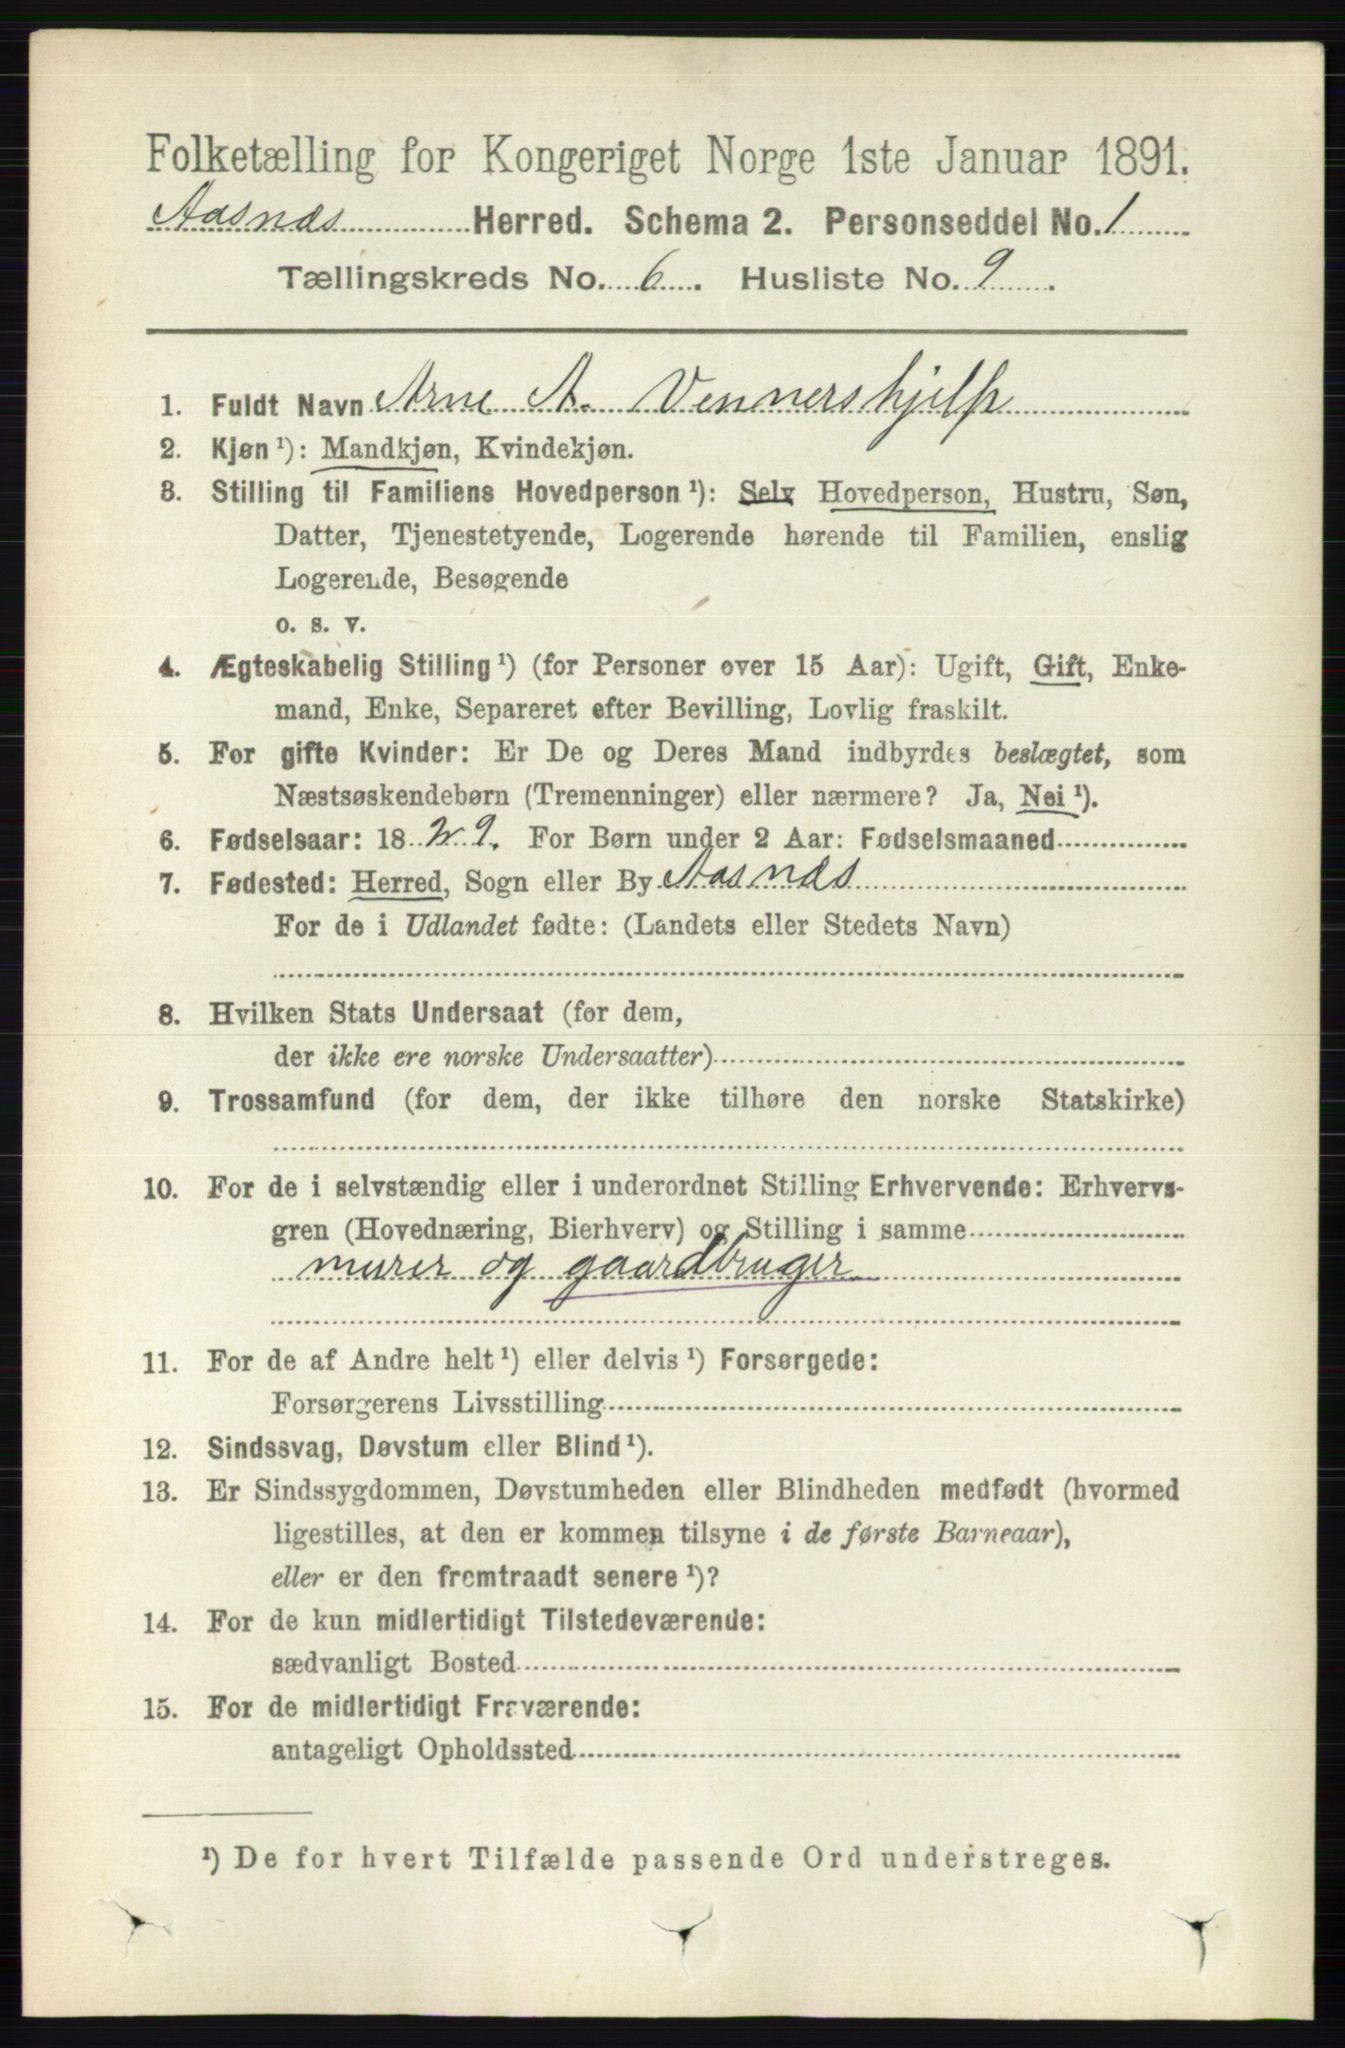 Folketælling for Kongeriget Norge 1ste Januar 1891.
Aasnæs Herred. Schema 2. Personseddel No. 1
Tællingskreds No. 6. Husliste No. 9
1. Fuldt Navn Arne A. Vennershjelp
2. Kjøn ¹): Mandkjøn, Kvindekjøn.
3. Stilling til Familiens Hovedperson ¹): Selv Hovedperson, Hustru, Søn,
Datter, Tjenestetyende, Logerende hørende til Familien, enslig
Logerende, Besøgende
o. s. v.
4. Ægteskabelig Stilling ¹) (for Personer over 15 Aar): Ugift, Gift, Enke-
mand, Enke, Separeret efter Bevilling, Lovlig fraskilt.
5. For gifte Kvinder: Er De og Deres Mand indbyrdes beslægtet, som
Næstsøskendebørn (Tremenninger) eller nærmere? Ja, Nei ¹).
6. Fødselsaar: 1829. For Børn under 2 Aar: Fødselsmaaned
7. Fødested: Herred, Sogn eller By Aasnæs
For de i Udlandet fødte: (Landets eller Stedets Navn)
8. Hvilken Stats Undersaat (for dem,
der ikke ere norske Undersaatter)
9. Trossamfund (for dem, der ikke tilhøre den norske Statskirke)
10. For de i selvstændig eller i underordnet Stilling Erhvervende: Erhvervs-
gren (Hovednæring, Bierhverv) og Stilling i samme
murer og gaardbruger
11. For de af Andre helt ¹) eller delvis ¹) Forsørgede:
Forsørgerens Livsstilling
12. Sindssvag, Døvstum eller Blind ¹).
13. Er Sindssygdommen, Døvstumheden eller Blindheden medfødt (hvormed
ligestilles, at den er kommen tilsyne i de første Barneaar),
eller er den fremtraadt senere ¹)?
14. For de kun midlertidigt Tilstedeværende:
sædvanligt Bosted
15. For de midlertidigt Fraværende:
antageligt Opholdssted
¹) De for hvert Tilfælde passende Ord understreges.